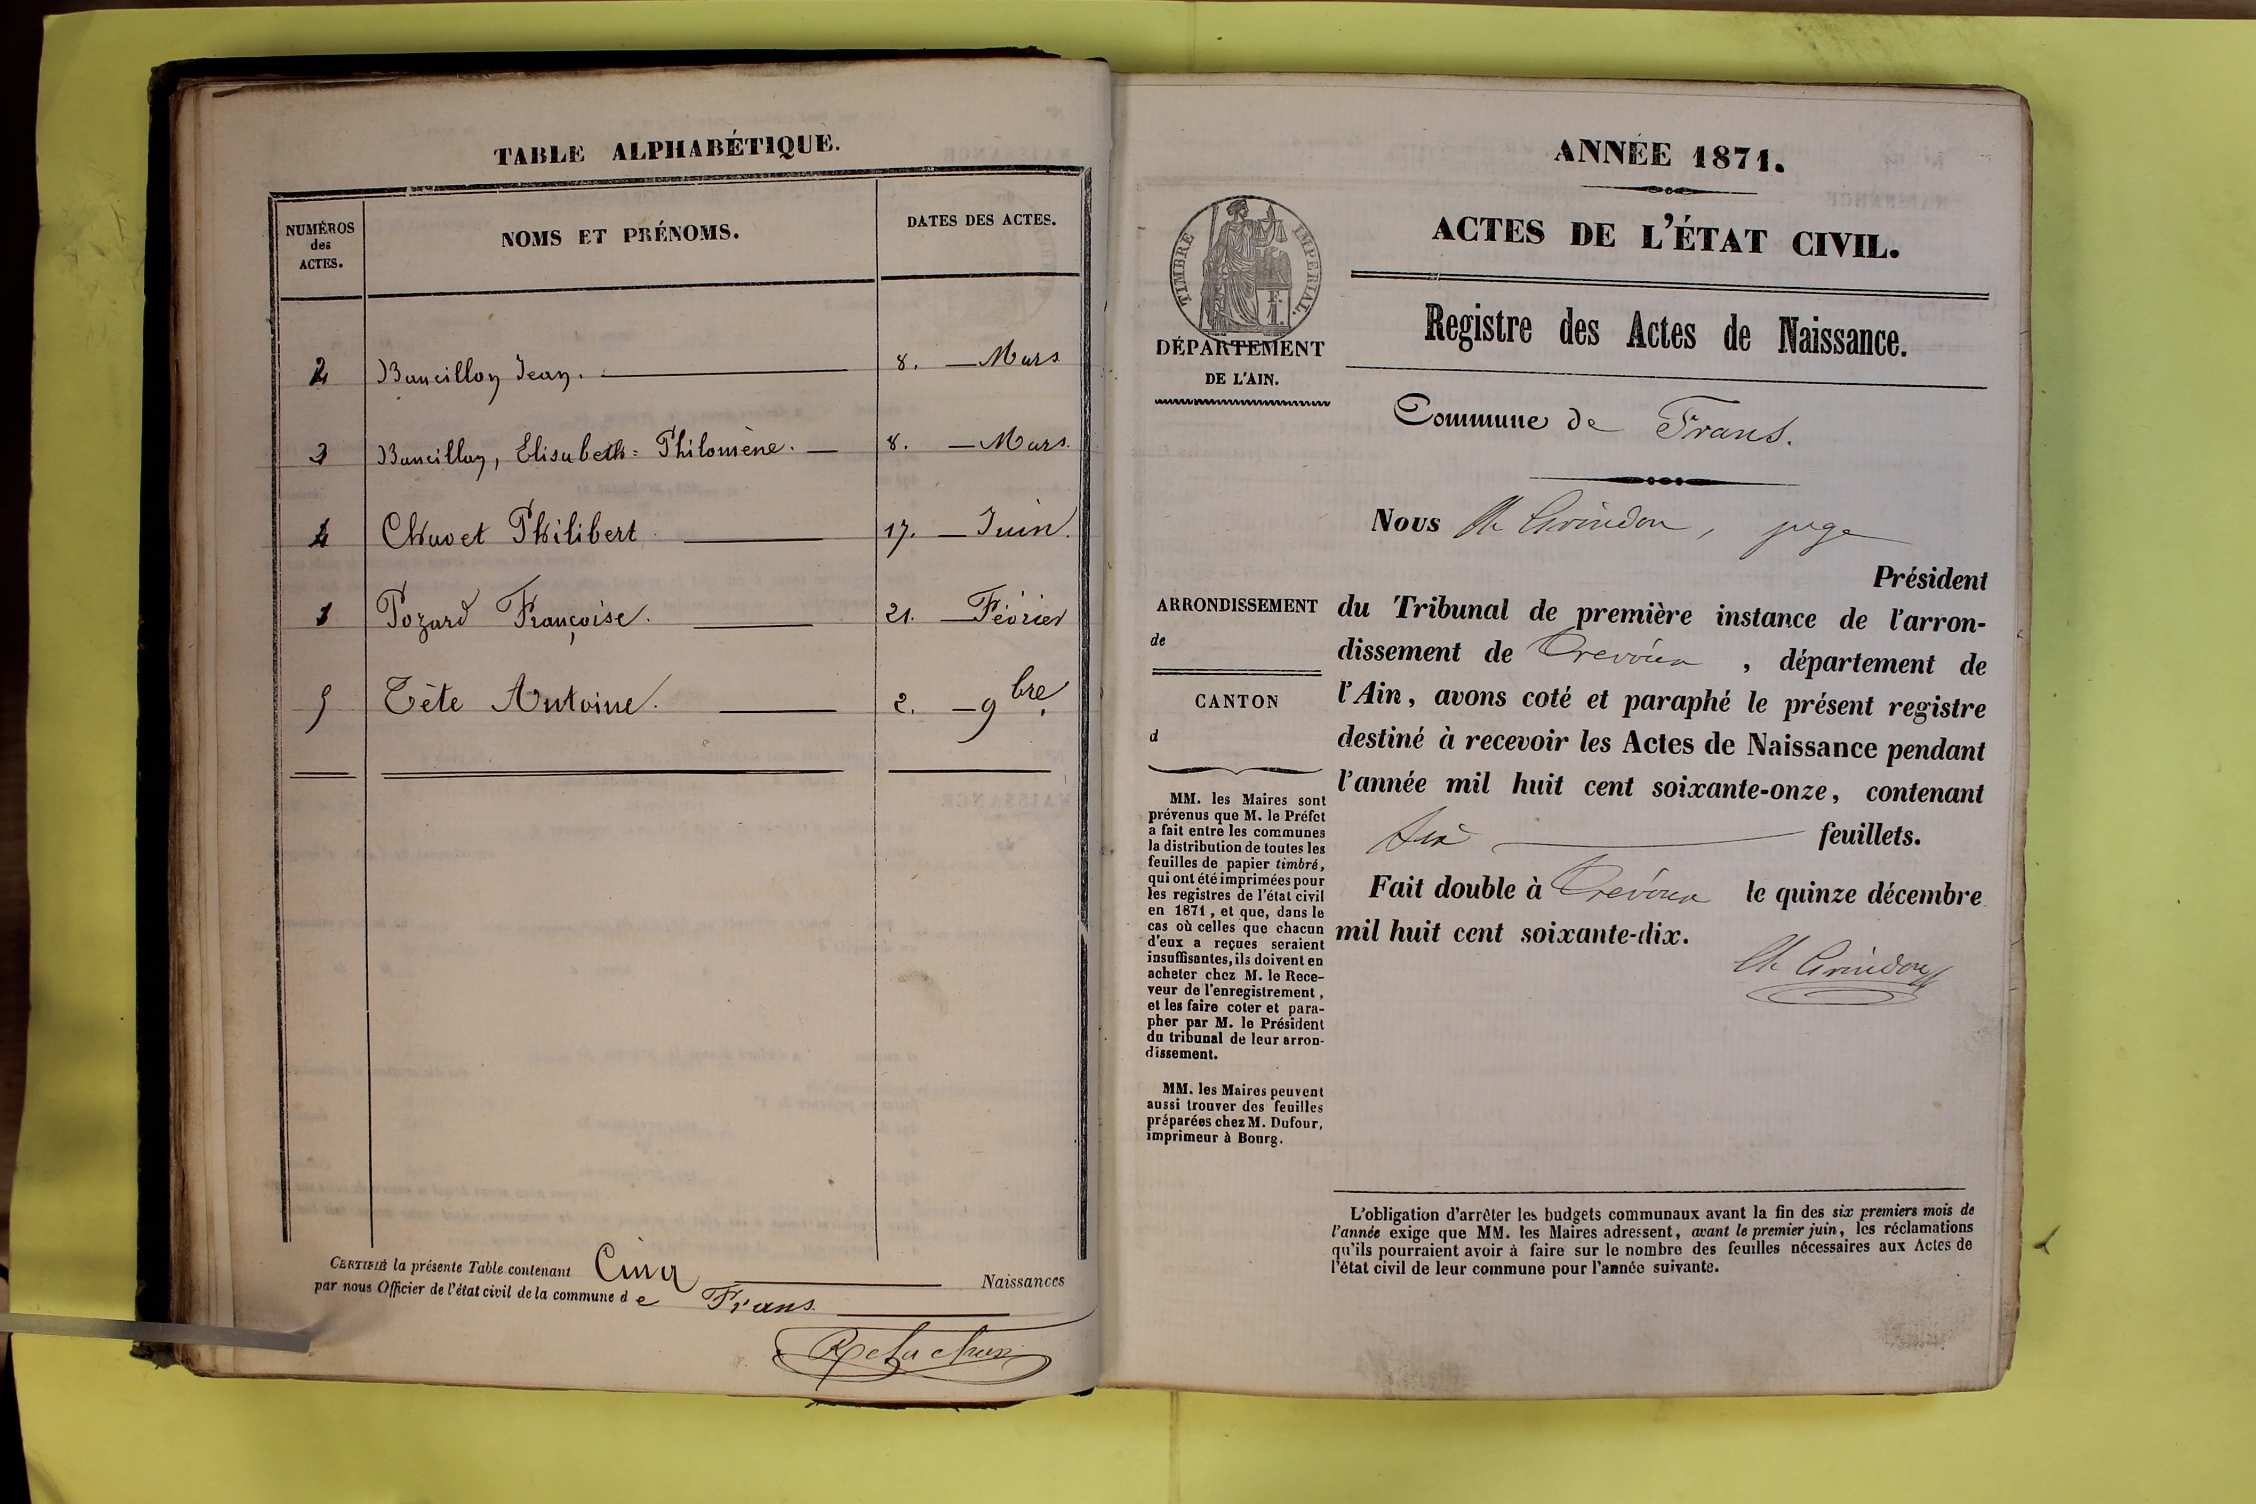 TABLE ALPHABÉTIQUE.
NUMÉROS
des
ACTES.
NOMS ET PRÉNOMS.
DATES DES ACTES.
2 Bancillon Jean. 8. Mars
3 Bancillon, Elisabeth = Philomène. 8. Mars.
4 Chavet Philibert 17. Juin.
1 Pozard Françoise. 21. Février
5 Tête Antoine. 2. 9bre.
CERTIFIÉ la présente Table contenant Cinq Naissances
par nous Officier de l'état civil de la commune de Frans
ANNÉE 1871.
ACTES DE L'ÉTAT CIVIL.
TIMBRE IMPERIAL.
1 F.
DÉPARTEMENT
DE L'AIN.
Registre des Actes de Naissance.
Commune de Frans.
Nous Ch Grindon, juge
Président
ARRONDISSEMENT
de
CANTON
d
du Tribunal de première instance de l'arron-
dissement de Trevoux, département de
l'Ain, avons coté et paraphé le présent registre
destiné à recevoir les Actes de Naissance pendant
l'année mil huit cent soixante-onze, contenant
six feuillets.
Fait double à Trévoux le quinze décembre
mil huit cent soixante-dix.
Ch Grindon
MM. les Maires sont
prévenus que M. le Préfet
a fait entre les communes
la distribution de toutes les
feuilles de papier timbré,
qui ont été imprimées pour
les registres de l'état civil
en 1871, et que, dans le
cas où celles que chacun
d'eux a reçues seraient
insuffisantes, ils doivent en
acheter chez M. le Rece-
veur de l'enregistrement,
et les faire coter et para-
pher par M. le Président
du tribunal de leur arron-
dissement.
MM. les Maires peuvent
aussi trouver des feuilles
préparées chez M. Dufour,
imprimeur à Bourg.
L'obligation d'arrêter les budgets communaux avant la fin des six premiers mois de
l'année exige que MM. les Maires adressent, avant le premier juin, les réclamations
qu'ils pourraient avoir à faire sur le nombre des feuilles nécessaires aux Actes de
l'état civil de leur commune pour l'année suivante.